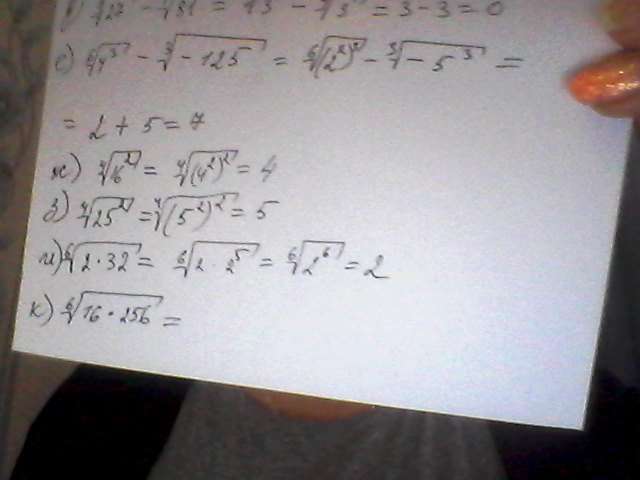 ∛27 − ∜81 = 3 − 3 = 0
е) ⁶√4³ − ³√−125 = ⁶√(2²)³ − ³√−5³ =
= 2 + 5 = 7
ж) ⁴√16² = ⁴√(4²)² = 4
з) ⁴√25² = ⁴√(5²)² = 5
и) ⁶√2·32 = ⁶√2·2⁵ = ⁶√2⁶ = 2
к) ⁶√16·256 =